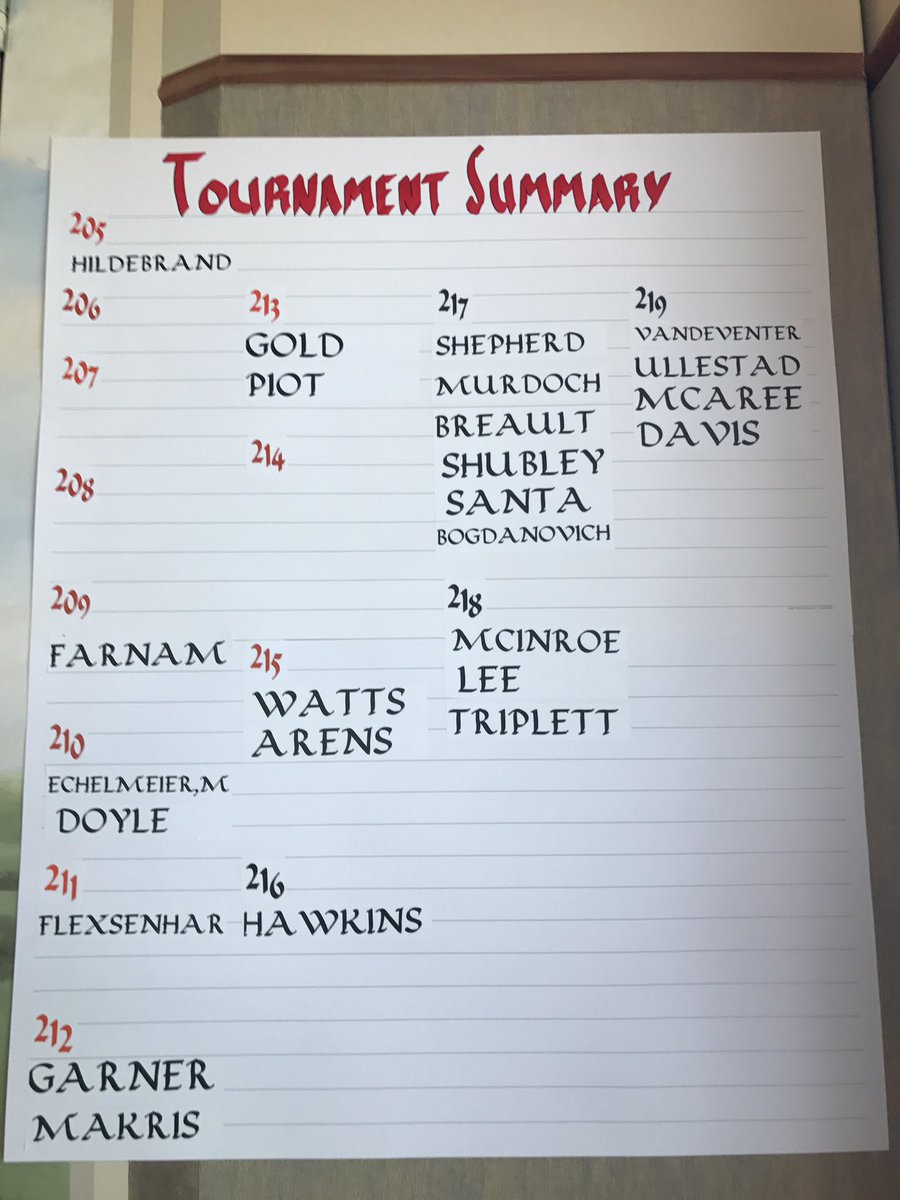 TOURNAMENT SUMMARY
205
HILDEBRAND
206
207
208
209
FARNAM
210
ECHELMEIER,M
DOYLE
211
FLEXSENHAR
212
GARNER
MAKRIS
213
GOLD
PIOT
214
215
WATTS
ARENS
216
HAWKINS
217
SHEPHERD
MURDOCH
BREAULT
SHUBLEY
SANTA
BOGDANOVICH
218
MCINROE
LEE
TRIPLETT
219
VANDEVENTER
ULLESTAD
MCAREE
DAVIS